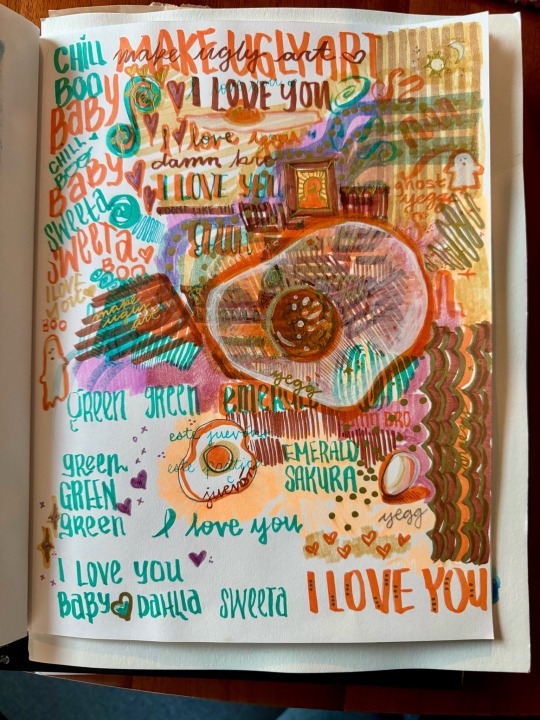 CHILL
BOO
BABY
CHILL
BOO
BABY
SWEETA
SWEETA
BOO
I LOVE
YOU
BOO
make ugly art
MAKE UGLY ART
I LOVE YOU
I love you
damn bro
I LOVE YOU
ghost
yeggs
make
ugly
art
yegg
Green green emerald
este juevo
este
juevo
EMERALD
SAKURA
BRO
yegg
green
GREEN
green
I love you
I LOVE YOU
BABY DAHLIA SWEETA
I LOVE YOU